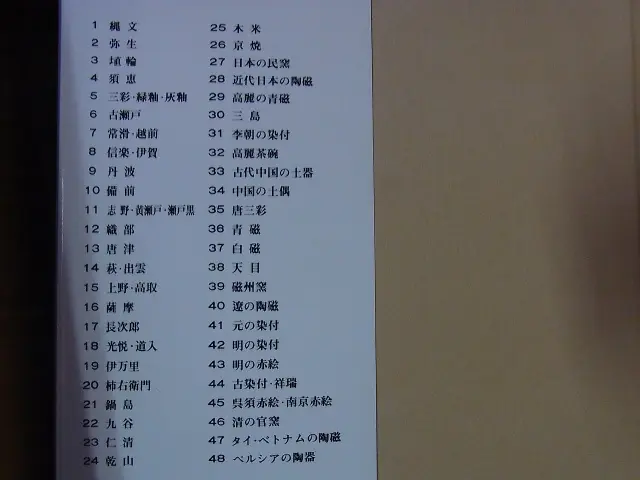 1 縄文
2 弥生
3 埴輪
4 須恵
5 三彩・緑釉・灰釉
6 古瀬戸
7 常滑・越前
8 信楽・伊賀
9 丹波
10 備前
11 志野・黄瀬戸・瀬戸黒
12 織部
13 唐津
14 萩・出雲
15 上野・高取
16 薩摩
17 長次郎
18 光悦・道入
19 伊万里
20 柿右衛門
21 鍋島
22 九谷
23 仁清
24 乾山
25 木米
26 京焼
27 日本の民窯
28 近代日本の陶磁
29 高麗の青磁
30 三島
31 李朝の染付
32 高麗茶碗
33 古代中国の土器
34 中国の土偶
35 唐三彩
36 青磁
37 白磁
38 天目
39 磁州窯
40 遼の陶磁
41 元の染付
42 明の染付
43 明の赤絵
44 古染付・祥瑞
45 呉須赤絵・南京赤絵
46 清の官窯
47 タイ・ベトナムの陶磁
48 ペルシアの陶器